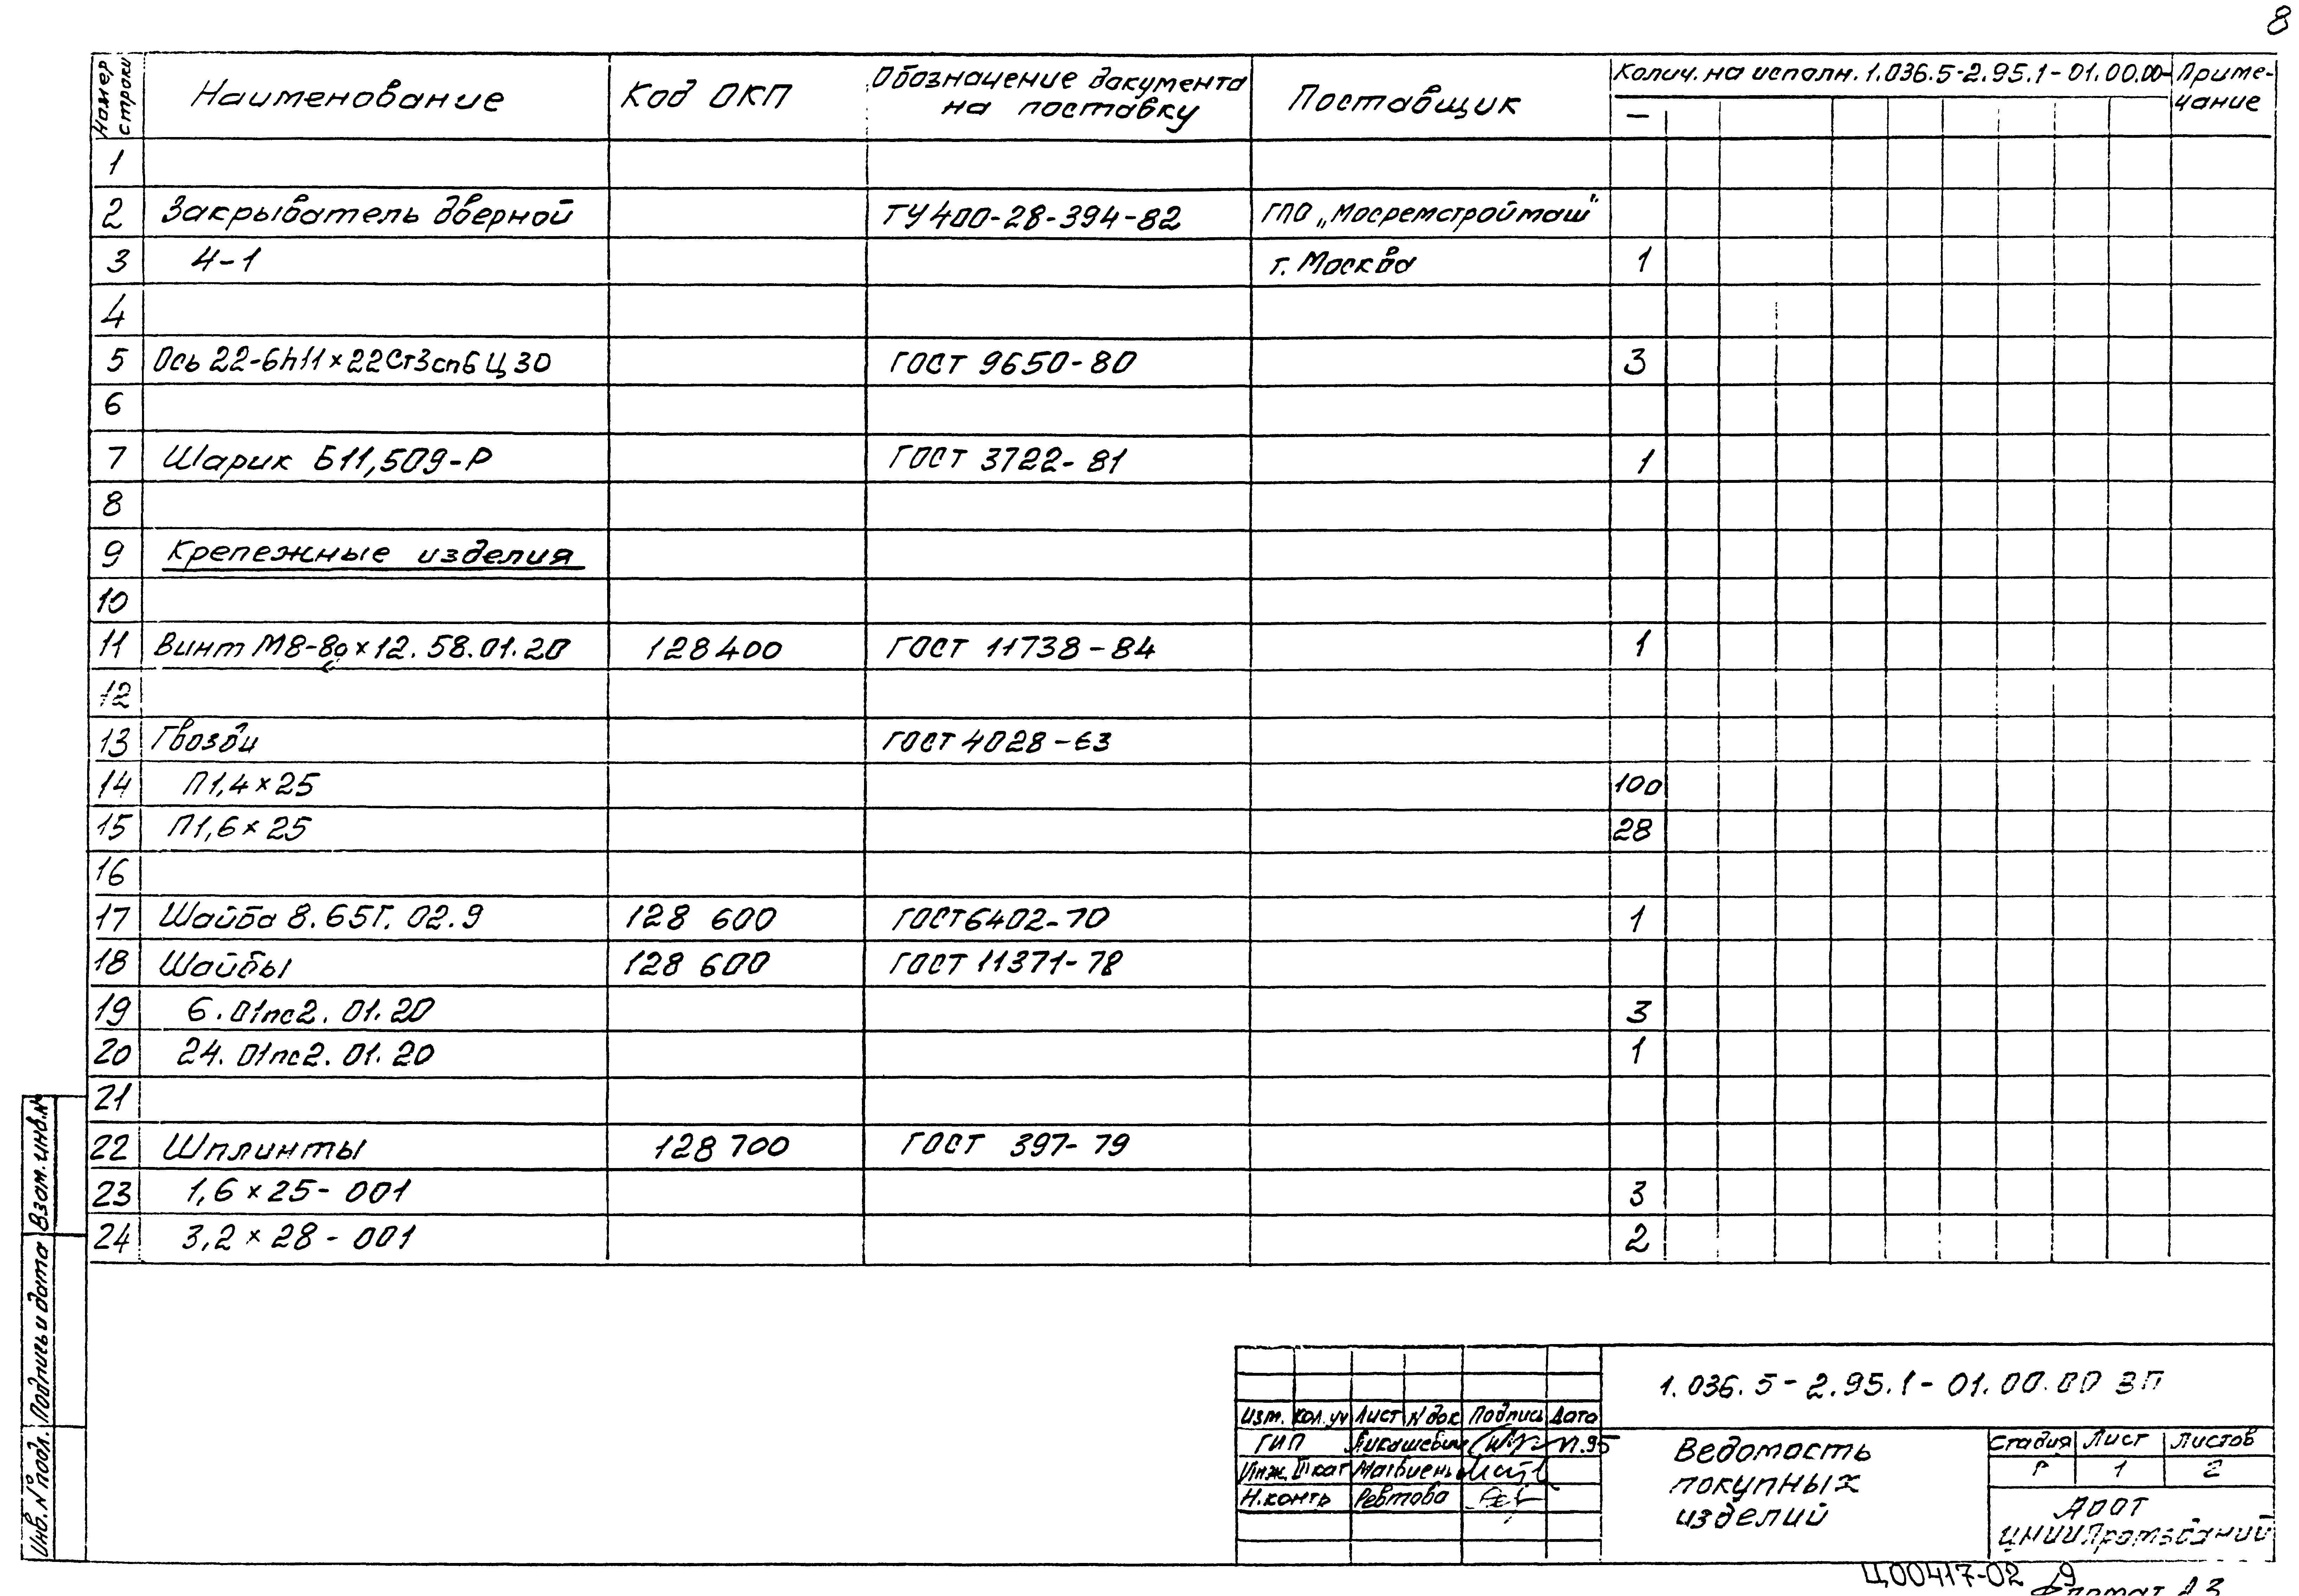 8
Номер строки
Наименование
Код ОКП
Обозначение документа
на поставку
Поставщик
Колич. на исполн. 1.036.5-2.95.1-01.00.00-
Приме-
чание
–
1
2 Закрыватель дверной ТУ400-28-394-82 ГПО „Мосремстроймаш"
3 4-1 г. Москва 1
4
5 Ось 22-6h11×22Ст3сп6Ц30 ГОСТ 9650-80 3
6
7 Шарик Б11,509-Р ГОСТ 3722-81 1
8
9 Крепежные изделия
10
11 Винт М8-8g×12.58.01.20 128400 ГОСТ 11738-84 1
12
13 Гвозди ГОСТ 4028-63
14 П1,4×25 100
15 П1,6×25 28
16
17 Шайба 8.65Г.02.9 128 600 ГОСТ6402-70 1
18 Шайбы 128 600 ГОСТ 11371-78
19 6.01пс2.01.20 3
20 24.01пс2.01.20 1
21
22 Шплинты 128 700 ГОСТ 397-79
23 1,6×25-001 3
24 3,2×28-001 2
Взам. инв. №
Подпись и дата
Инв. № подл.
1.036.5-2.95.1-01.00.00 ВП
Изм. Кол.уч Лист №док Подпись Дата
ГИП Лукашевич 11.95
Инж. II кат
Н.контр Ревтова
Ведомость
покупных
изделий
Стадия Лист Листов
Р 1 2
АООТ
ЦНИИПромзданий
Ц00417-02 9
Формат А3